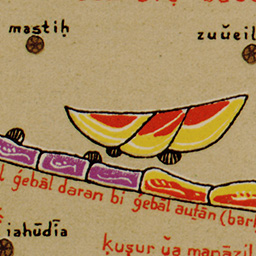 mastiḥ
zuŭeil
l ǵebāl daran bi ǵebāl auṭān (barb
iahūdīa
ḳuṣur ŭa manāzil